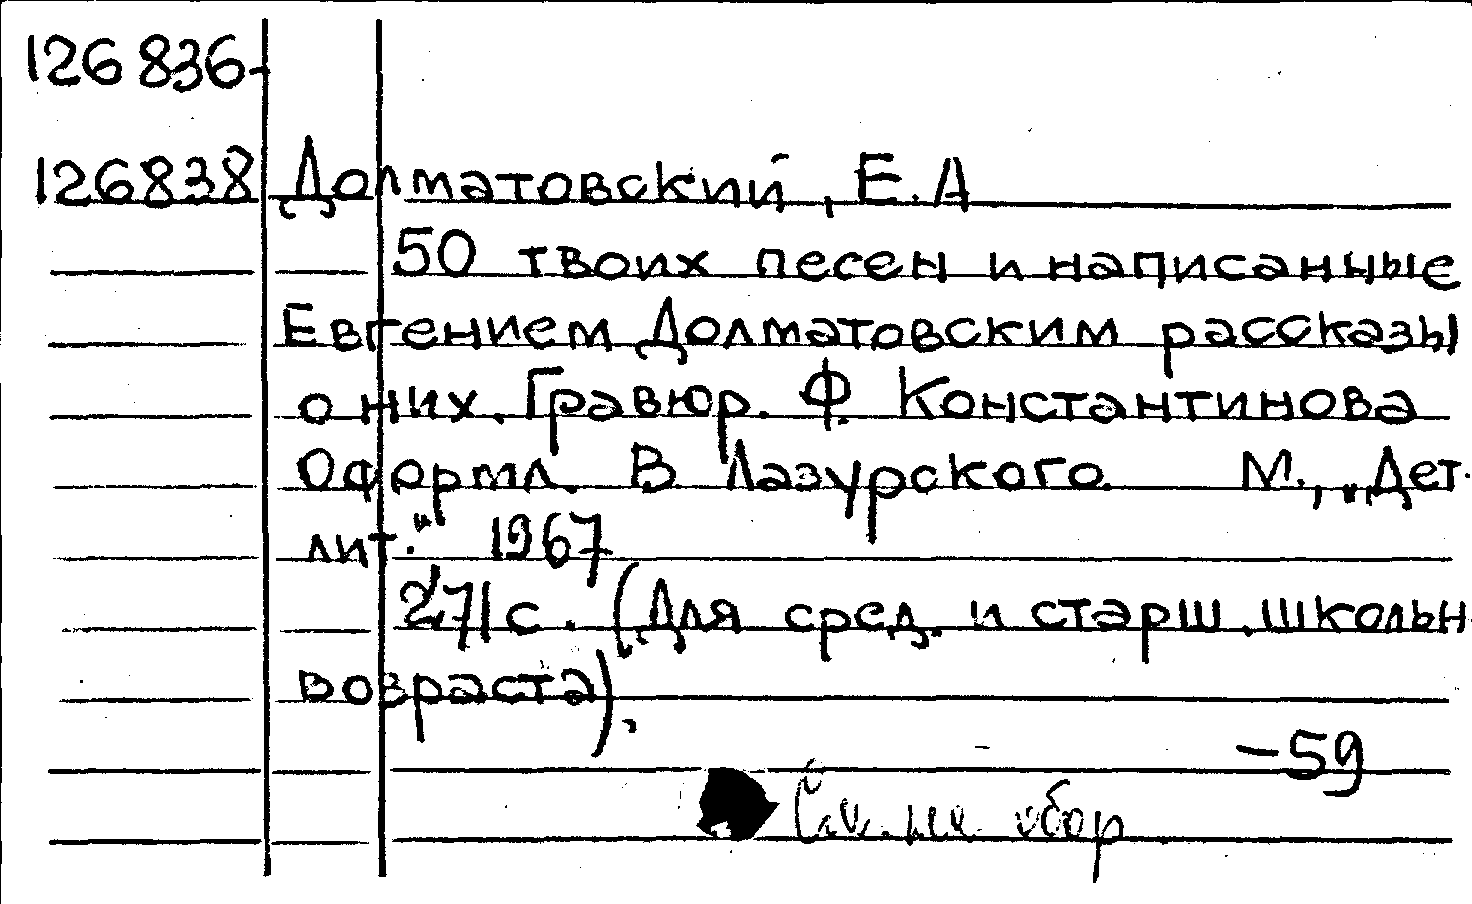 126 836-
126838 Долматовский, Е.А
50 твоих песен и написанные
Евгением Долматовским рассказы
о них. Гравюр. Ф. Константинова
Оформл. В Лазурского. М., „Дет.
лит." 1967
271с. (Для сред. и старш. школьн
возраста).
-59
См. на обор